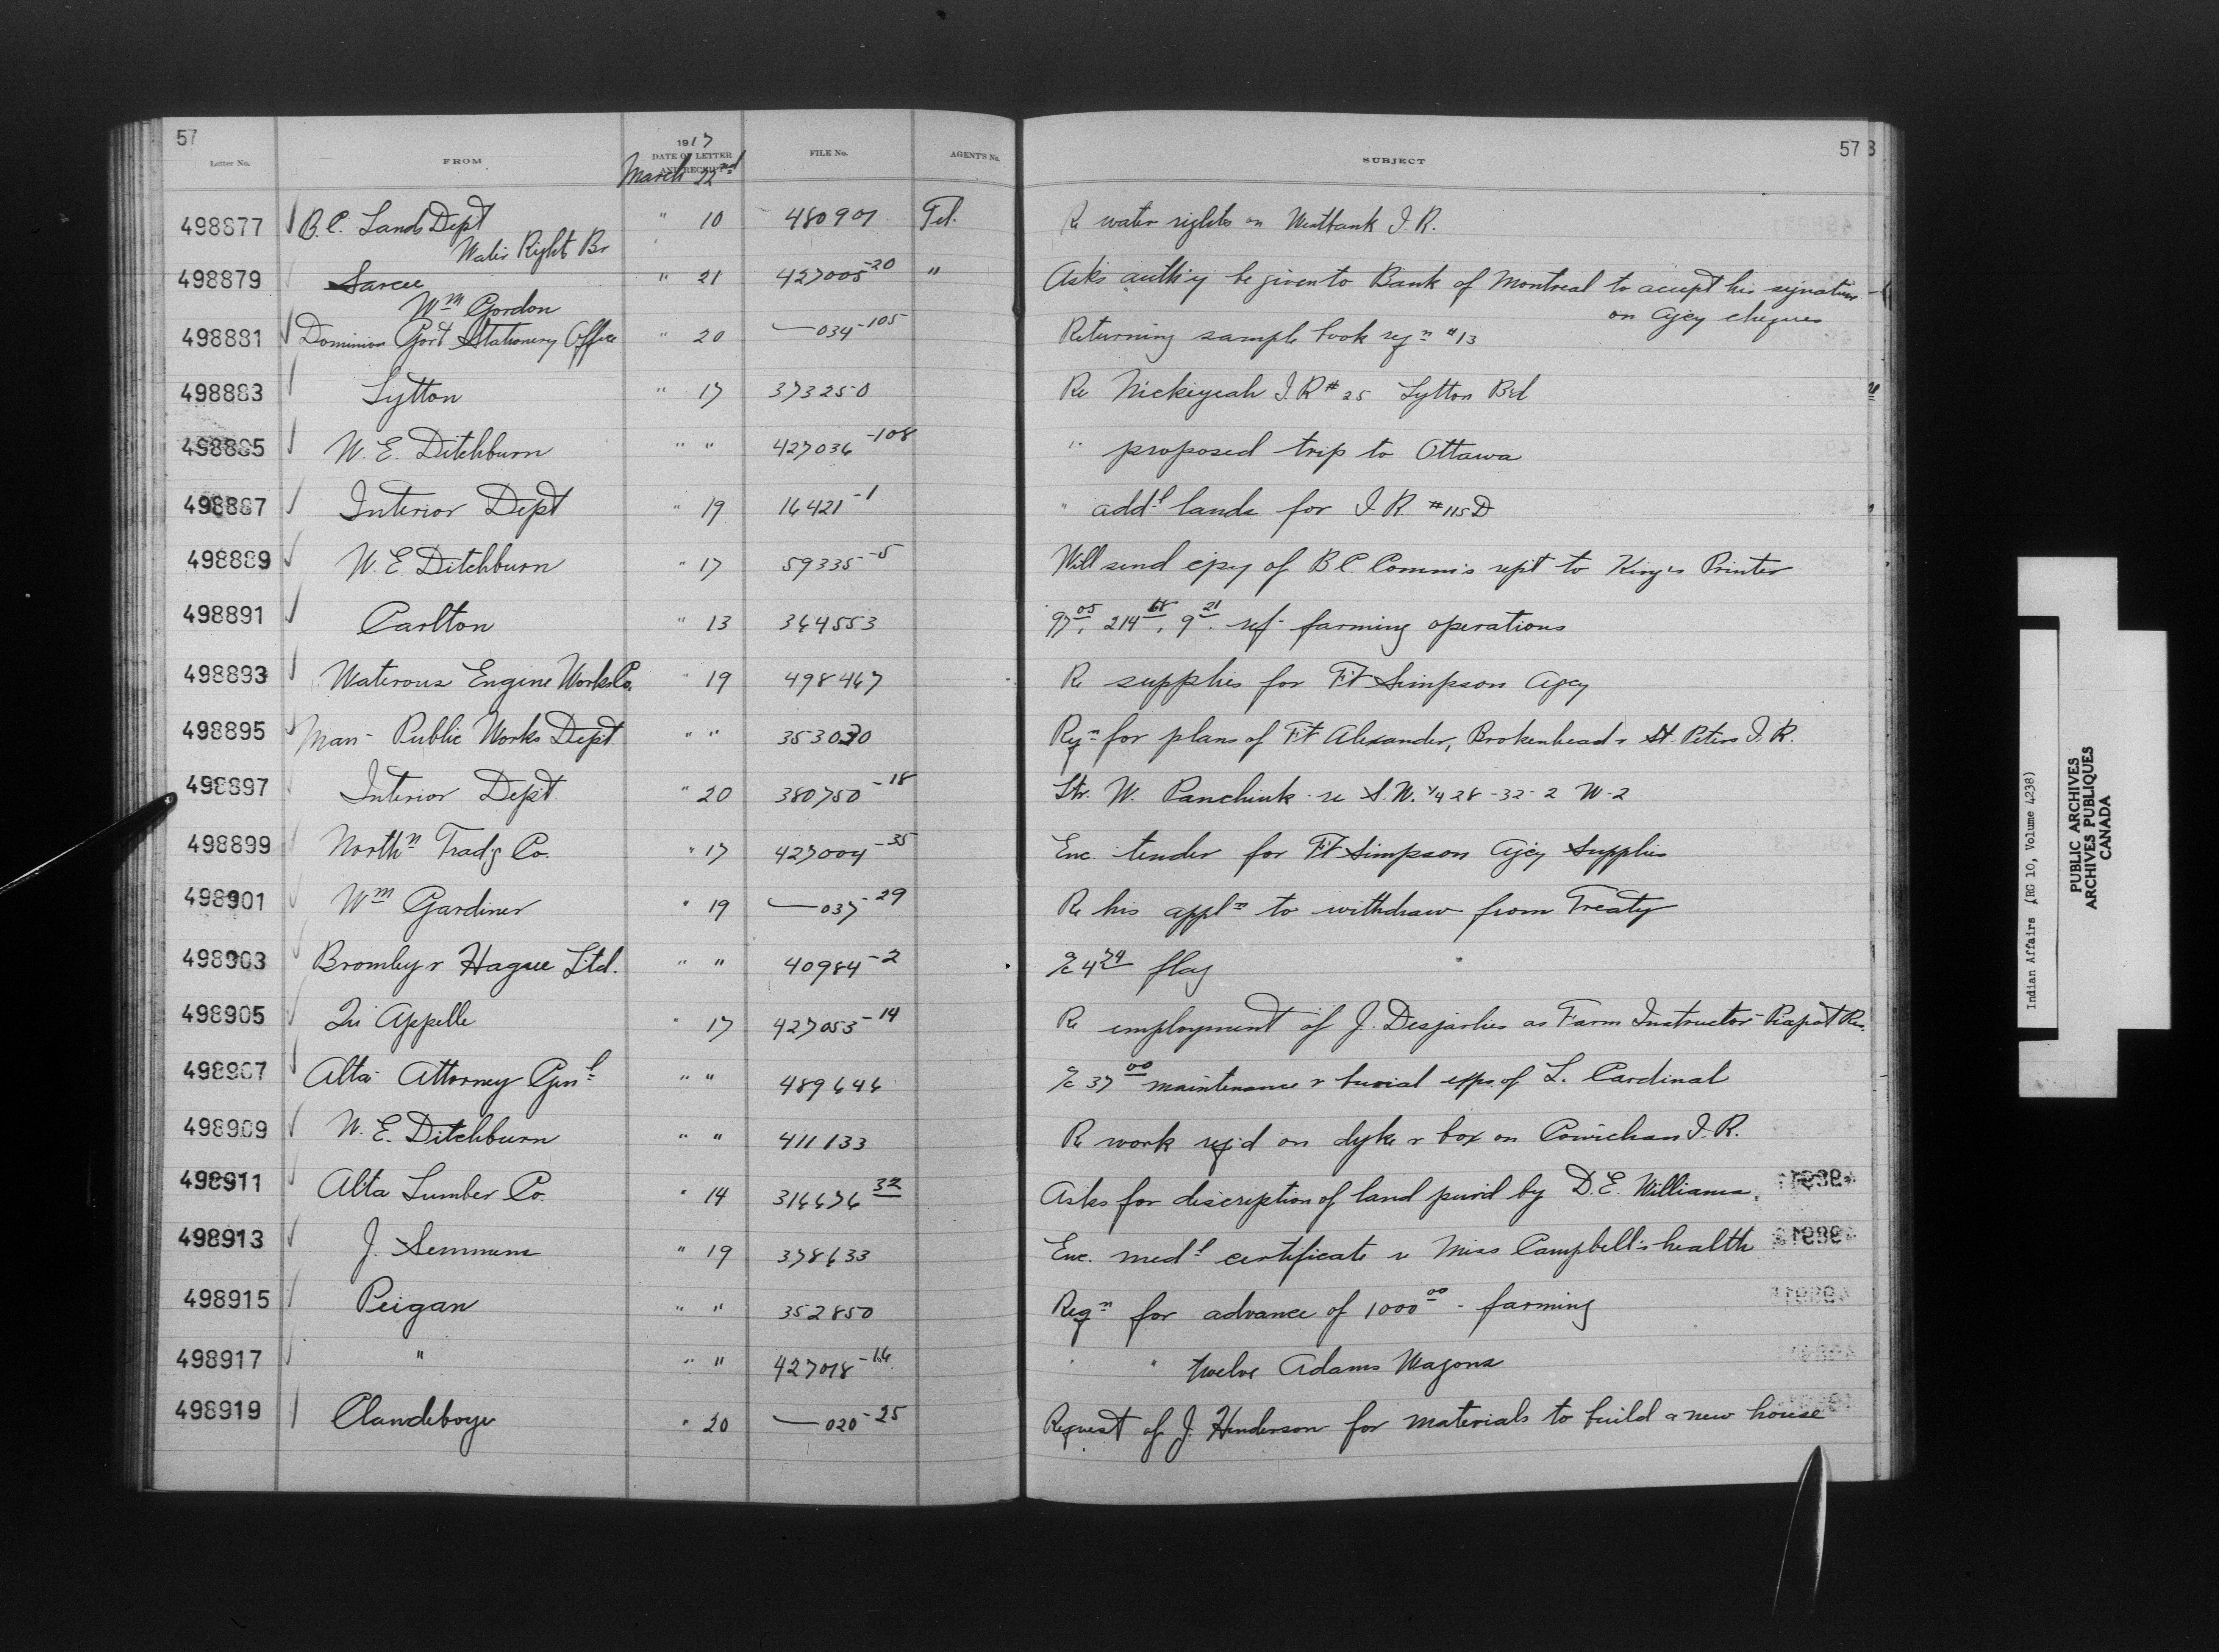 57
57 3
Letter No. FROM 1917 DATE OF LETTER AND RECEIPT FILE No. AGENT'S No. SUBJECT
March 22nd
498877 B.C. Lands Dept " 10 480901 Tel. Re water rights on Westbank I.R.
Water Right Br
498879 Sarcee " 21 427005-20 " Asks auth'y be given to Bank of Montreal to accept his signature
Wm Gordon on Agcy cheques
498881 Dominion Govt Stationery Office " 20 —034-105 Returning sample book reqn #13
498883 Lytton " 17 373250 Re Nickeyeah I.R # 25 Lytton Bd
498885 W. E. Ditchburn " " 427036-108 " proposed trip to Ottawa
498887 Interior Dept " 19 16421-1 " addl lands for I.R. #115D
498889 W. E. Ditchburn " 17 59335-5 Will send cpy of B C Comm's rept to King's Printer
498891 Carlton " 13 364553 97.05, 214.68, 9.21. ref- farming operations
498893 Waterous Engine Works Co. " 19 498467 Re supplies for Ft Simpson Agcy
498895 Man- Public Works Dept. " " 353030 Reqn for plans of Ft Alexander, Brokenhead & St. Peters I.R.
498897 Interior Dep't " 20 380750-18 W. Panchuk re S.W. 1/4 28-32-2 W-2
498899 Northn Trad'g Co. " 17 427004-35 Enc. tender for Ft Simpson Agcy Supplies
498901 Wm Gardiner " 19 —037-29 Re his appln to withdraw from Treaty
498903 Bromley & Hague Ltd. " " 40984-2 a/c 4.74 flag
498905 Qu'Appelle " 17 427053-14 Re employment of J. Desjarlies as Farm Instructor- Piapot Res.
498907 Alta- Attorney Genl " " 489646 a/c 37.00 maintenance & burial exps. of L. Cardinal
498909 W. E. Ditchburn " " 411133 Re work req'd on dyke & box on Cowichan I.R.
498911 Alta Lumber Co. " 14 316676 32 Asks for discription of land purd by D. E. Williams.
498913 J. Semmens " 19 378633 Enc. medl certificate re Miss Campbell's health
498915 Peigan " " 352850 Reqn for advance of 1000.00 - farming
498917 " " " 427018-16 " " twelve Adams Wagons
498919 Clandeboye " 20 —020-25 Request of J. Henderson for materials to build a new house
Indian Affairs (RG 10, Volume 4238)
PUBLIC ARCHIVES
ARCHIVES PUBLIQUES
CANADA